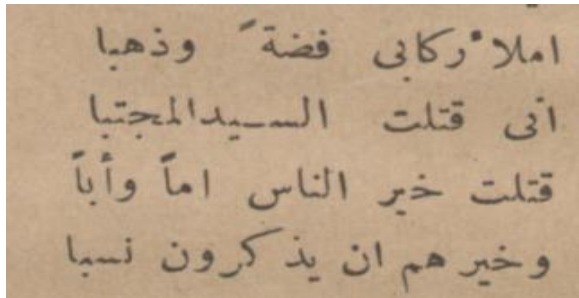 املاْ ركابى فضةً وذهبا
انى قتلت السيدالمجتبا
قتلت خير الناس اماً وأباً
وخير هم ان يذكرون نسبا